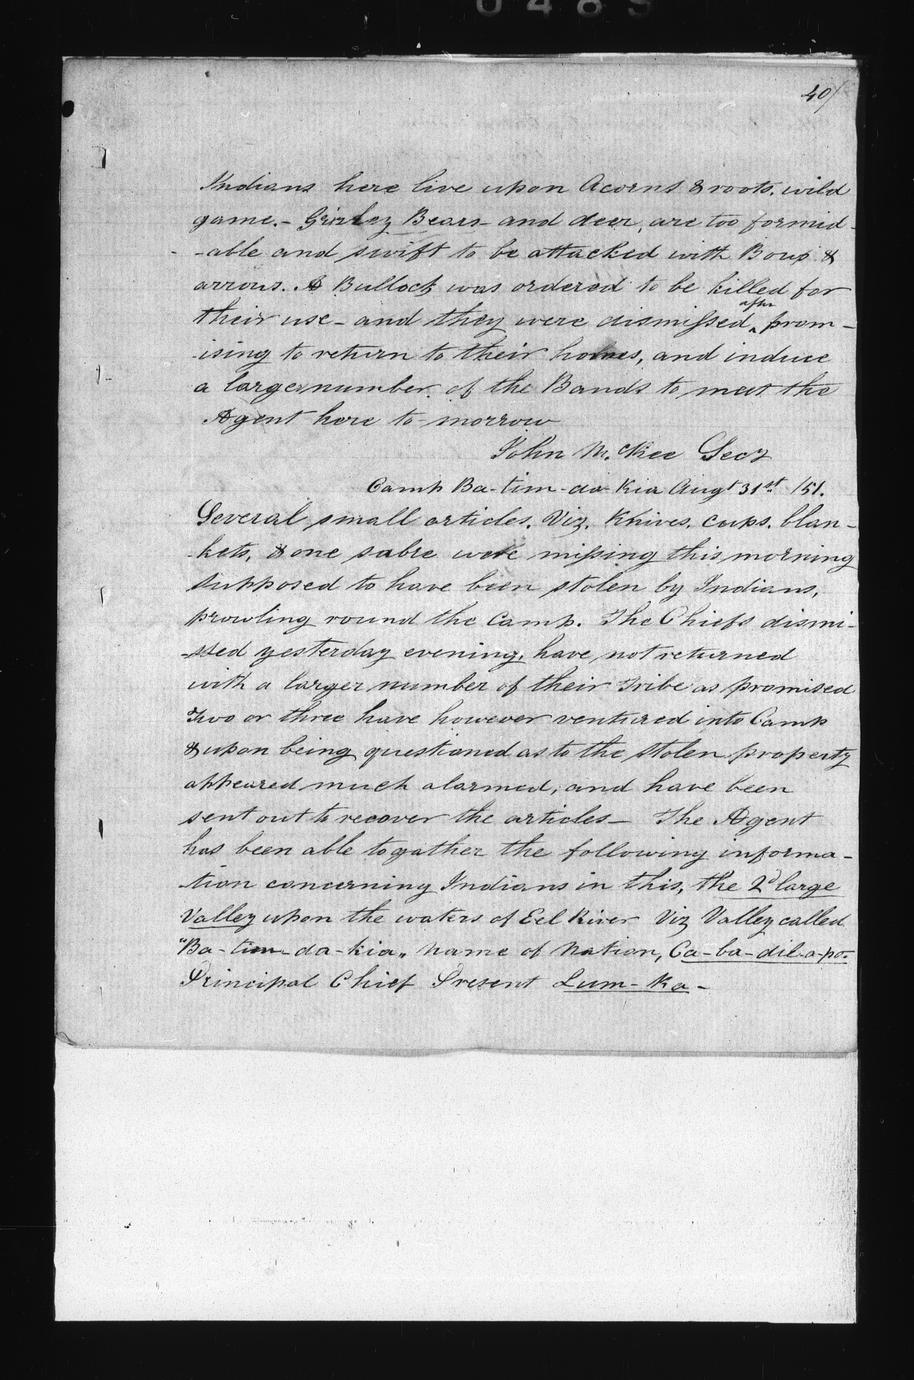 0489
40/
Indians here live upon Acorns & roots. wild
game. - Grizley Bears - and deer, are too formid-
-able and swift to be attacked with Bows &
arrows. A Bullock was ordered to be killed for
their use - and they were dismissed, after prom-
-ising to return to their homes, and induce
a large number of the Bands to meet the
Agent here to morrow
John McKee Secy
Camp Ba-tim-da-Kia Augt 31st /51.
Several small articles. Viz. Knives. cups. blan-
-kets, & one sabre were missing this morning
supposed to have been stolen by Indians,
prowling round the Camp. The Chiefs dismi-
-ssed yesterday evening, have not returned
with a larger number of their Tribe as promised
Two or three have however ventured into Camp
& upon being questioned as to the stolen property
appeared much alarmed, and have been
sent out to recover the articles - The Agent
has been able to gather the following informa-
-tion concerning Indians in this, the 2d large
Valley upon the waters of Eel River Viz Valley called
"Ba-tim-da-kia" name of Nation, Ca-ba-dil-a-po.
Principal Chief Present Lum-Ka -